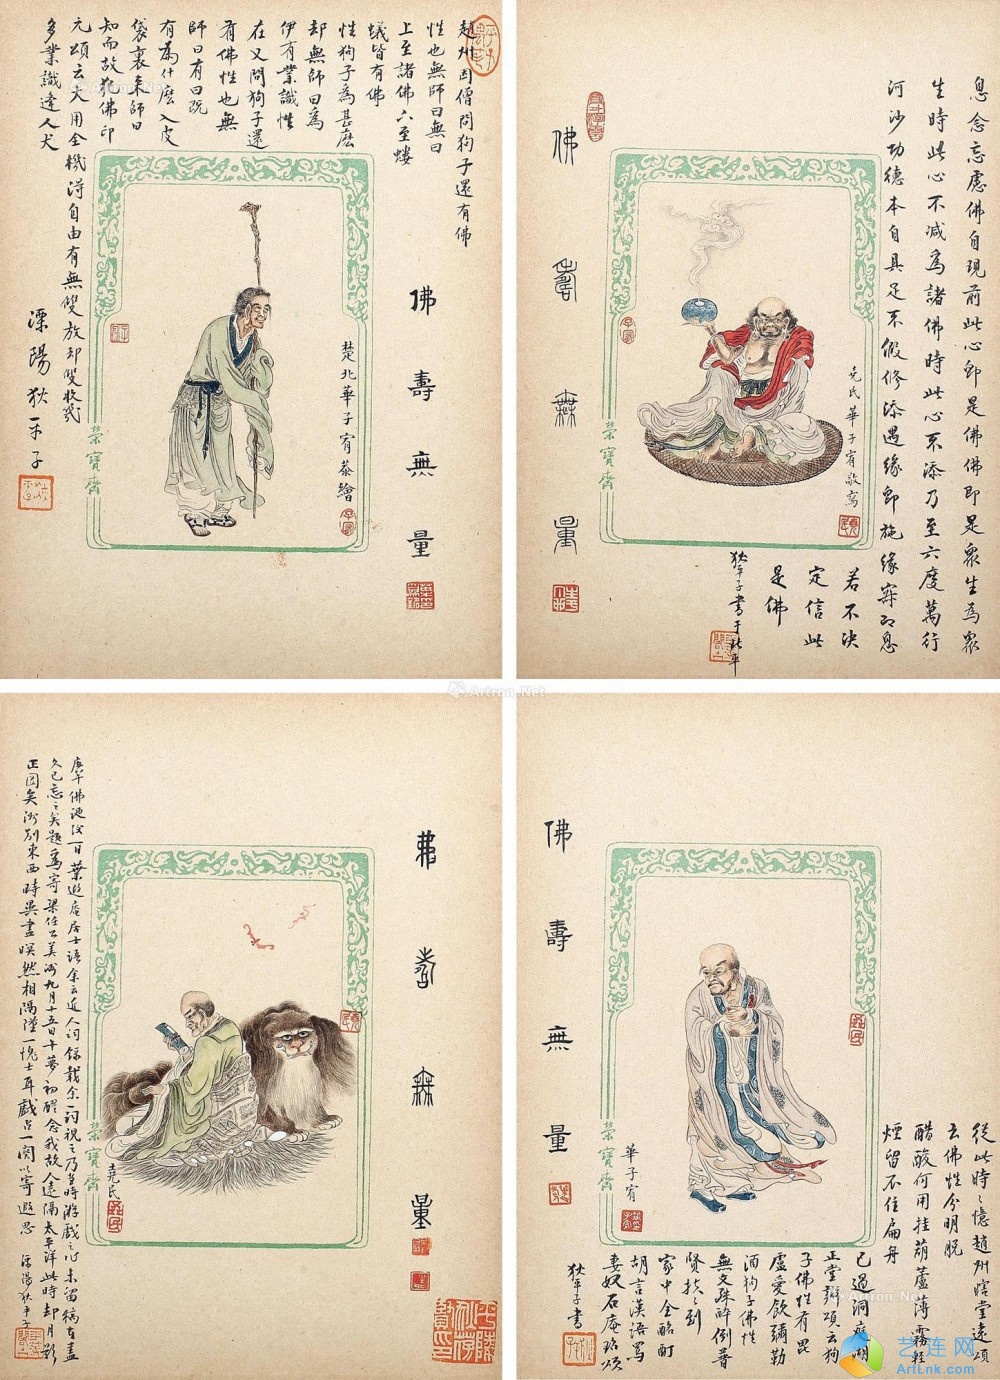 趙州因僧問狗子還有佛
性也無師曰無曰
上至諸佛六至螻
蟻皆有佛
性狗子為甚麽
却無師曰為
伊有業識性
在又問狗子還
有佛性也無
師曰有曰既
有為什麽入皮
袋裏來師曰
知而故犯佛印
元頌云大用全機得自由有無雙放却雙收
多業識逢人犬
溧陽狄平子
佛壽無量
楚北華子宥恭繪
榮寶齋
息念忘慮佛自現前此心即是佛佛即是眾生為眾
生時此心不减為諸佛時此心不添乃至六度萬行
河沙功德本自具足不假修添遇緣即施緣寂即息
若不决
定信此
是佛
狄平子書于北平
佛壽無量
堯民華子宥敬寫
榮寶齋
佛壽無量
庚午佛誕後一日葉遐庵居士語余云近人詞錄載余一詞視之乃當時游戲之心未留稿者蓋
久已忘之矣題為寄梁任公美洲九月十五日午夢初醒念我故人遠隔太平洋此時却月影
正圓矣洲别東西時異晝暝然相隔墜一愧士耳戲占一闋以寄遐思
溧陽狄平子
堯民
榮寶齋
佛壽無量
從此時時憶趙州瞎堂遠頌
云佛性分明脱
醋酸何用挂葫蘆薄霧輕
煙留不住扁舟
已過洞庭湖
正堂辯頌云狗
子佛性有毘
盧愛飲彌勒
酒狗子佛性
無文殊醉倒普
賢扶扶到
家中全酩酊
胡言漢語罵
妻奴石庵珞頌
狄平子書
華子宥
榮寶齋
Artron.Net
艺连网
ArtLnk.com